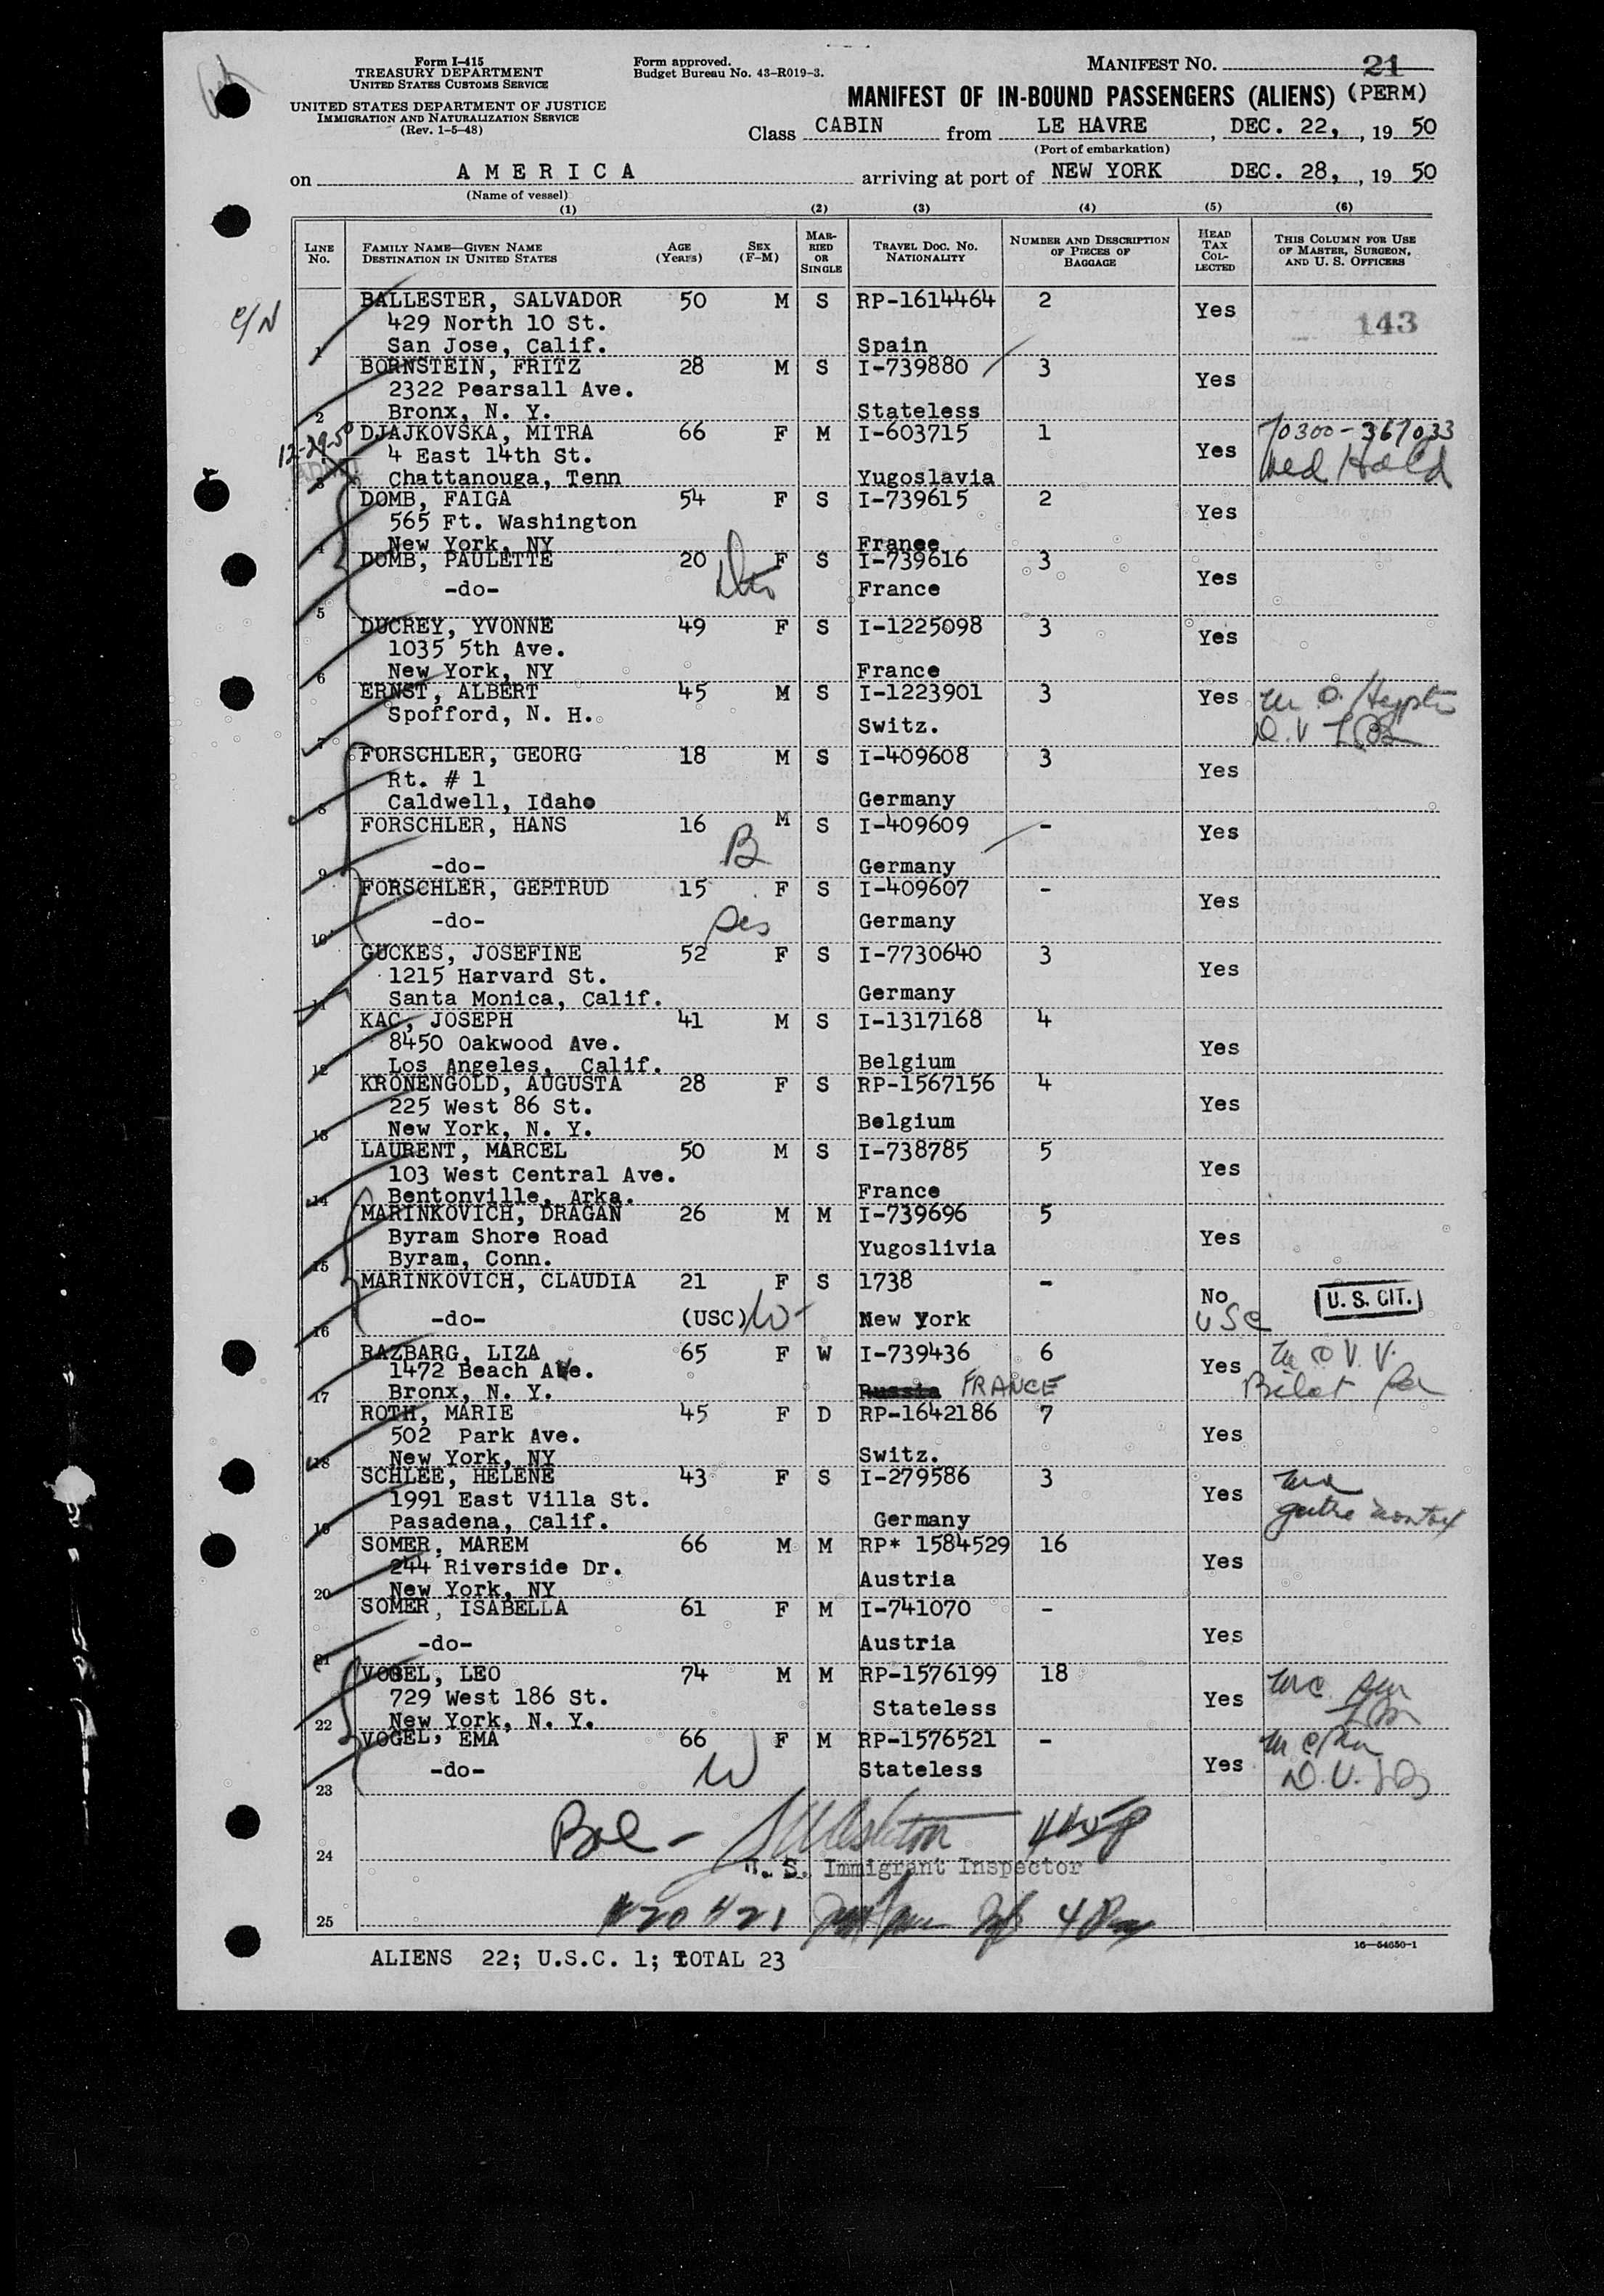 Form I-415
TREASURY DEPARTMENT
UNITED STATES CUSTOMS SERVICE
UNITED STATES DEPARTMENT OF JUSTICE
IMMIGRATION AND NATURALIZATION SERVICE
(Rev. 1-5-48)
Form approved.
Budget Bureau No. 43-R019-3.
MANIFEST NO. 21
MANIFEST OF IN-BOUND PASSENGERS (ALIENS) (PERM)
Class CABIN from LE HAVRE, DEC. 22, , 19 50
(Port of embarkation)
on A M E R I C A arriving at port of NEW YORK DEC. 28, , 19 50
(Name of vessel)
(1) (2) (3) (4) (5) (6)
LINE NO.
FAMILY NAME—GIVEN NAME
DESTINATION IN UNITED STATES
AGE (Years)
SEX (F-M)
MARRIED OR SINGLE
TRAVEL DOC. NO.
NATIONALITY
NUMBER AND DESCRIPTION OF PIECES OF BAGGAGE
HEAD TAX COLLECTED
THIS COLUMN FOR USE OF MASTER, SURGEON, AND U. S. OFFICERS
C/N
BALLESTER, SALVADOR 50 M S RP-1614464 2 Yes
429 North 10 St. 143
1 San Jose, Calif. Spain
BORNSTEIN, FRITZ 28 M S I-739880 3 Yes
2322 Pearsall Ave.
2 Bronx, N. Y. Stateless
12-29-50
DJAJKOVSKA, MITRA 66 F M I-603715 1 Yes 70300-367033
4 East 14th St. Med Held
3 Chattanouga, Tenn Yugoslavia
DOMB, FAIGA 54 F S I-739615 2 Yes
565 Ft. Washington
4 New York, NY France
DOMB, PAULETTE 20 F S I-739616 3 Yes
-do- France
5
DUCREY, YVONNE 49 F S I-1225098 3 Yes
1035 5th Ave.
6 New York, NY France
ERNST, ALBERT 45 M S I-1223901 3 Yes
Spofford, N. H. Switz.
7
FORSCHLER, GEORG 18 M S I-409608 3 Yes
Rt. # 1
8 Caldwell, Idaho Germany
FORSCHLER, HANS 16 M S I-409609 - Yes
B
9 -do- Germany
FORSCHLER, GERTRUD 15 F S I-409607 - Yes
-do- Sis Germany
10
GUCKES, JOSEFINE 52 F S I-7730640 3 Yes
1215 Harvard St.
11 Santa Monica, Calif. Germany
KAC, JOSEPH 41 M S I-1317168 4 Yes
8450 Oakwood Ave.
12 Los Angeles, Calif. Belgium
KRONENGOLD, AUGUSTA 28 F S RP-1567156 4 Yes
225 West 86 St.
13 New York, N. Y. Belgium
LAURENT, MARCEL 50 M S I-738785 5 Yes
103 West Central Ave.
14 Bentonville, Arka. France
MARINKOVICH, DRAGAN 26 M M I-739696 5 Yes
Byram Shore Road
15 Byram, Conn. Yugoslivia
MARINKOVICH, CLAUDIA 21 F S 1738 - No U. S. CIT.
16 -do- (USC) W- New York USC
RAZBARG, LIZA 65 F W I-739436 6 Yes
1472 Beach Ave.
17 Bronx, N. Y. Russia FRANCE
ROTH, MARIE 45 F D RP-1642186 7 Yes
502 Park Ave.
18 New York, NY Switz.
SCHLEE, HELENE 43 F S I-279586 3 Yes
1991 East Villa St.
19 Pasadena, Calif. Germany
SOMER, MAREM 66 M M RP* 1584529 16 Yes
244 Riverside Dr.
20 New York, NY Austria
SOMER, ISABELLA 61 F M I-741070 - Yes
-do- Austria
21
VOGEL, LEO 74 M M RP-1576199 18 Yes
729 West 186 St. Stateless
22 New York, N. Y.
VOGEL, EMA 66 F M RP-1576521 - Yes
-do- W Stateless
23
24
U. S. Immigrant Inspector
25 #20 #21
16—54650-1
ALIENS 22; U.S.C. 1; TOTAL 23